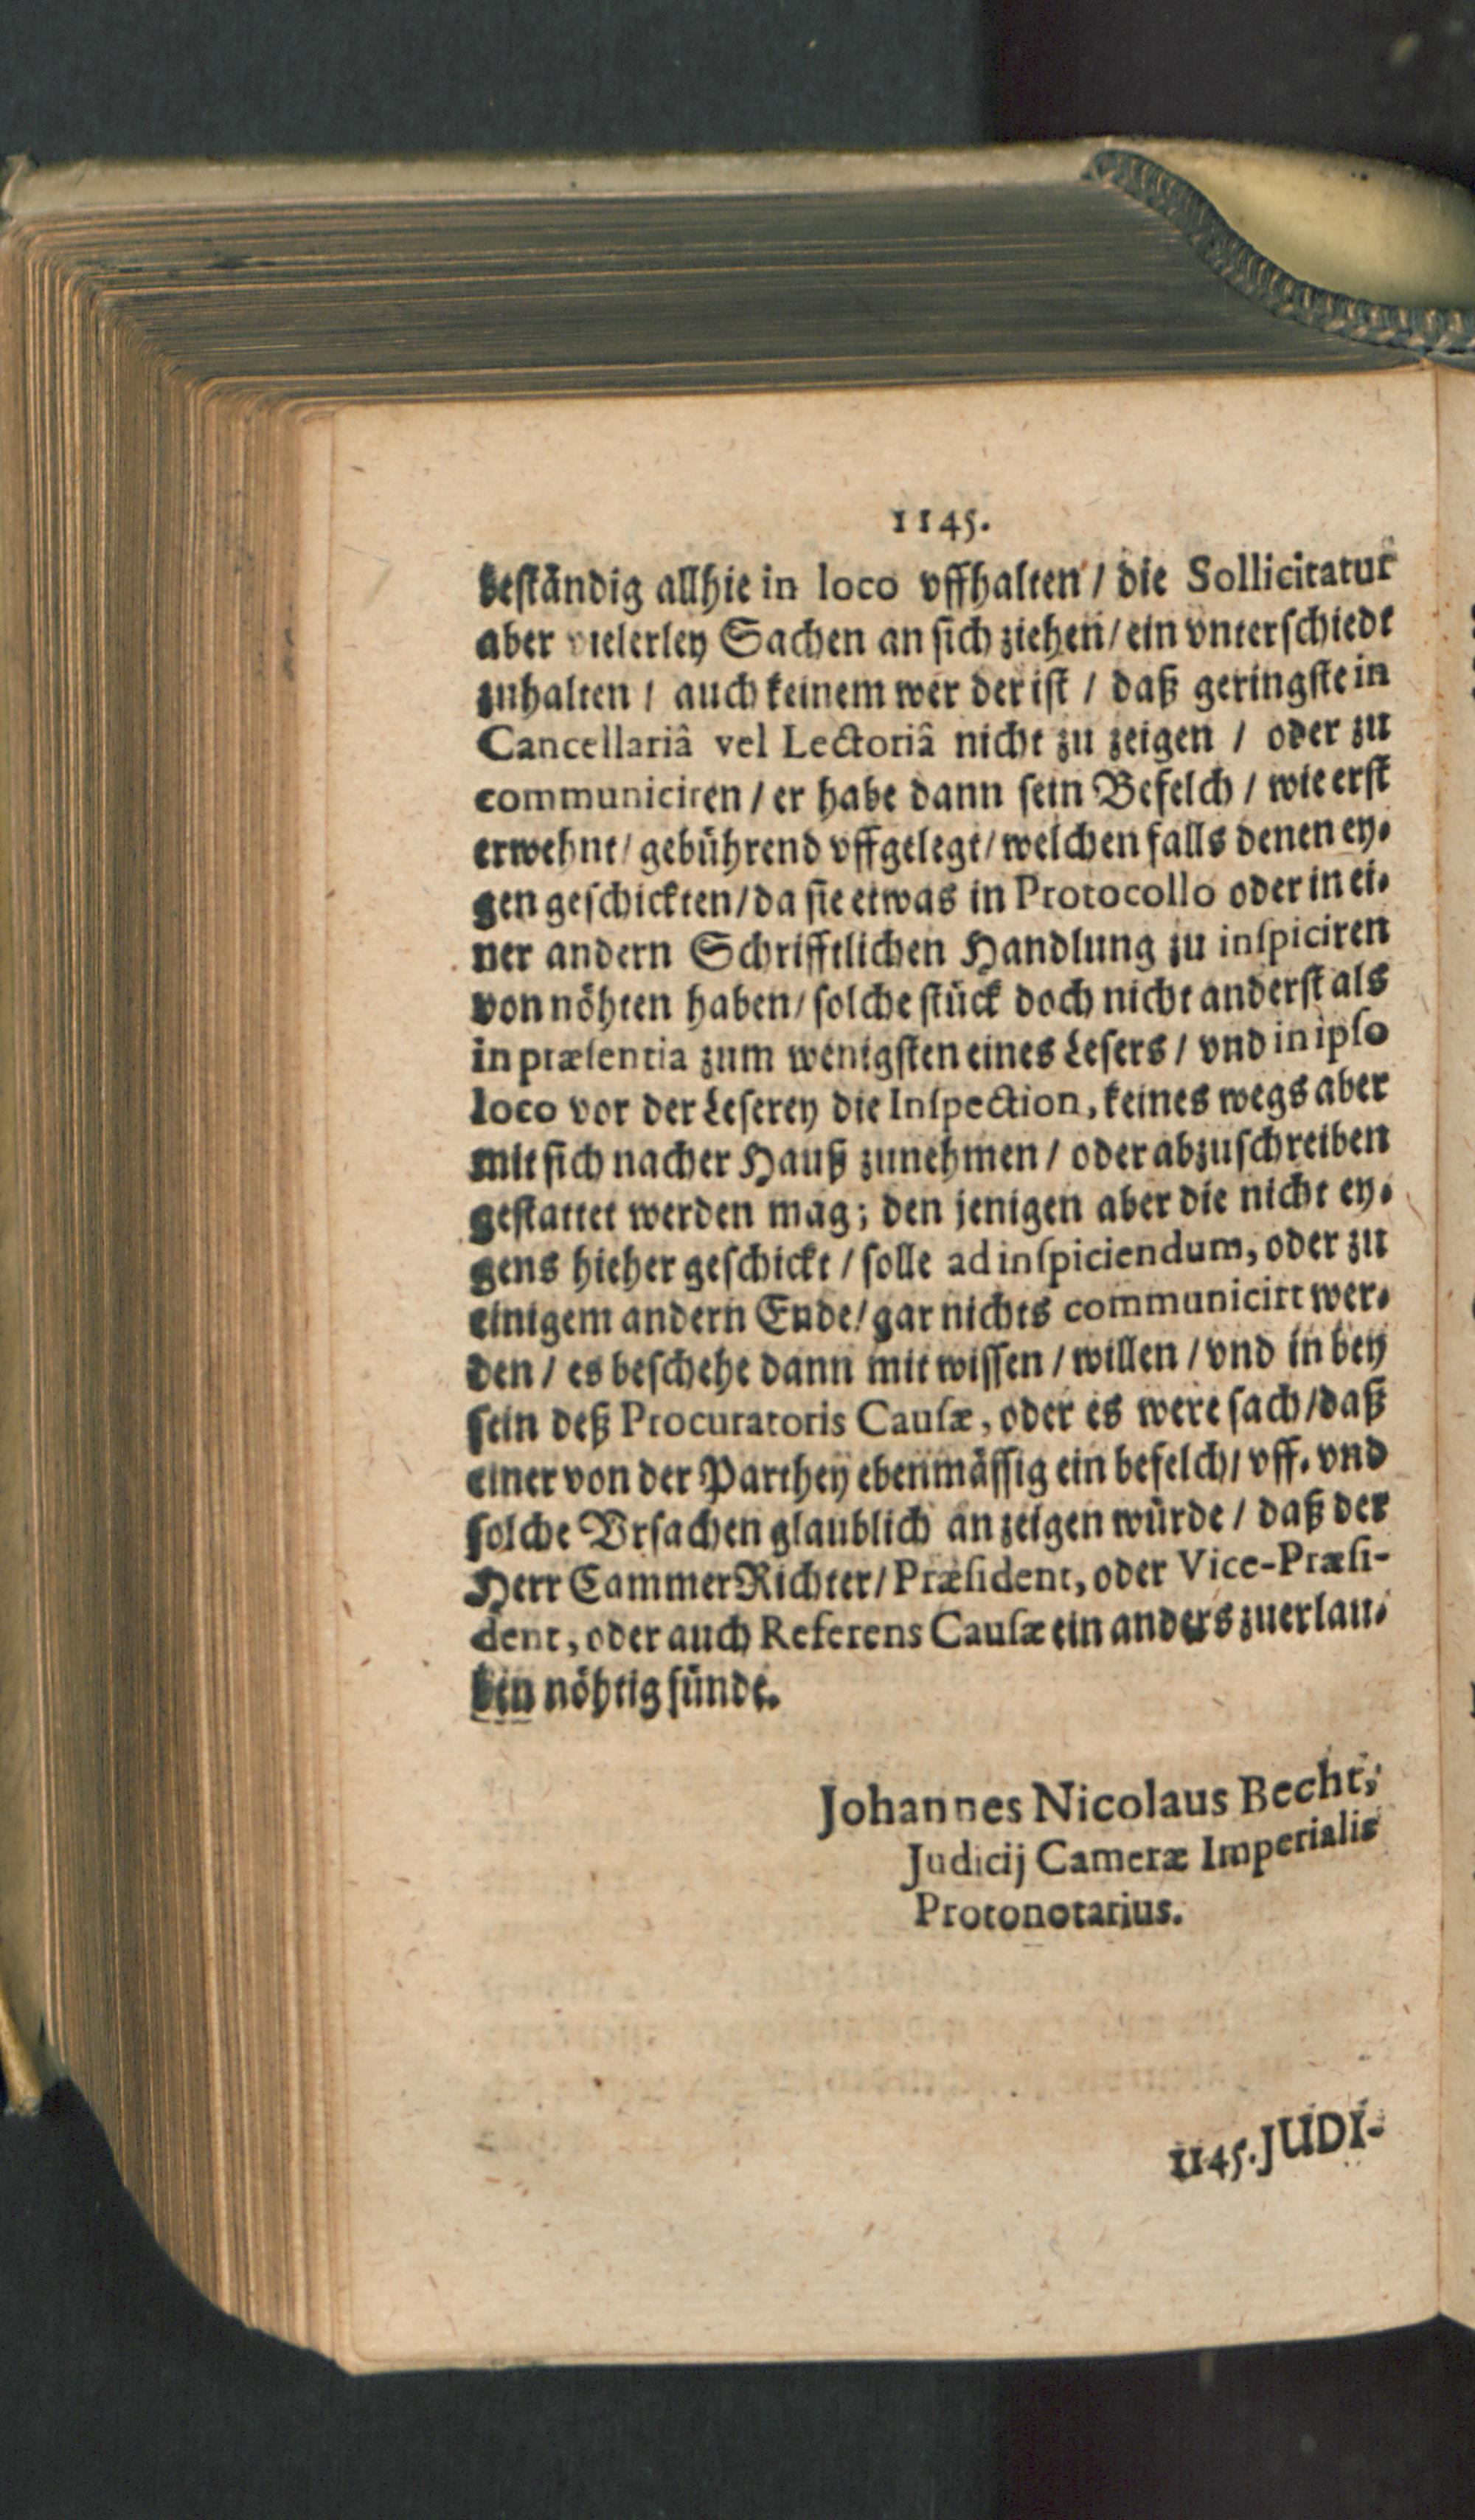 1145.
beständig allhie in loco vffhalten / die Sollicitatur
aber vielerley Sachen an sich ziehen / ein vnterschiedt
zuhalten / auch keinem wer der ist / daß geringste in
Cancellariâ vel Lectoriâ nicht zu zeigen / oder zu
communiciren / er habe dann sein Befelch / wie erst
erwehnt / gebührend vffgelegt / welchen falls denen ey-
gen geschickten / da sie etwas in Protocollo oder in ei-
ner andern Schrifftlichen Handlung zu inſpiciren
von nöhten haben / solche stück doch nicht anderst als
in præſentia zum wenigsten eines Lesers / vnd in ipſo
loco vor der Leserey die Inſpection, keines wegs aber
mit sich nacher Hauß zunehmen / oder abzuschreiben
gestattet werden mag; den jenigen aber die nicht ey-
gens hieher geschickt / solle ad inſpiciendum, oder zu
einigem andern Ende / gar nichts communicirt wer-
den / es beschehe dann mit wissen / willen / vnd in bey
sein deß Procuratoris Cauſæ, oder es were sach / daß
einer von der Parthey ebenmässig ein befelch / vff- vnd
solche Vrsachen glaublich anzeigen würde / daß der
Herr CammerRichter / Præſident, oder Vice-Præſi-
dent, oder auch Referens Cauſæ ein anders zuerlau-
ben nöhtig fünde.
Johannes Nicolaus Becht,
Judicij Cameræ Imperialis
Protonotarius.
1145. JUDI-